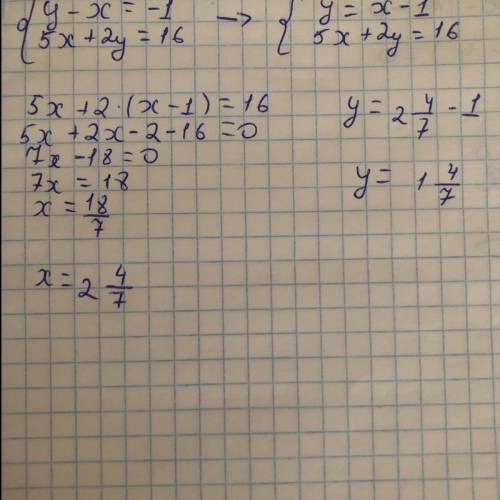 { y - x = -1 → { y = x - 1
5x + 2y = 16 5x + 2y = 16
5x + 2·(x - 1) = 16
5x + 2x - 2 - 16 = 0
7x - 18 = 0
7x = 18
x = 18/7
x = 2 4/7
y = 2 4/7 - 1
y = 1 4/7